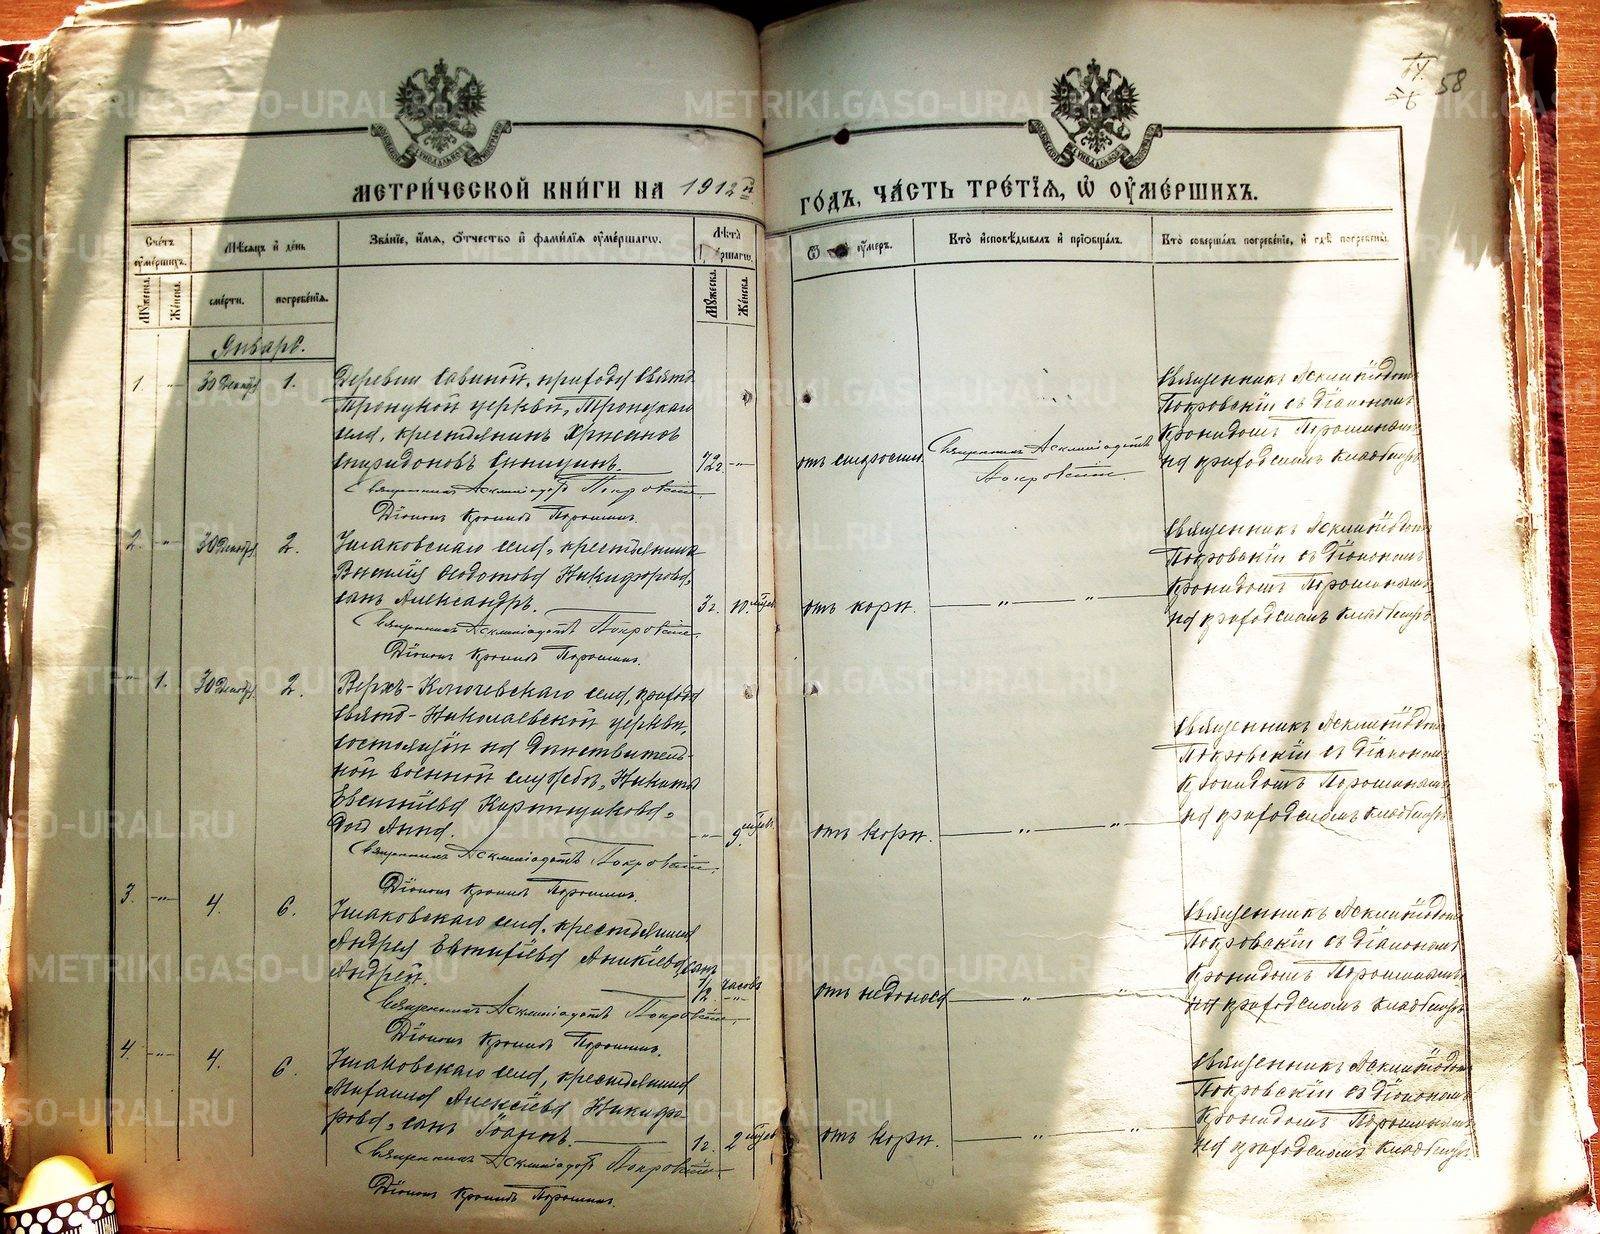 57
56 58
МЕТРИ́ЧЕСКОЙ КНИ́ГИ НА 1912 й
ГО́ДЪ, ЧА́СТЬ ТРЕ́ТІѦ, Ѽ ОУМЕ́РШИХЪ.
Сче́тъ оуме́ршихъ.
Му́жеска.
Же́нска.
Мѣ́сяцъ и де́нь
сме́рти.
погребе́нія.
Зва́ніе, и́мя, о́тчество и фами́лія оуме́ршагѡ.
Лѣ́та
ршагѡ.
Му́жеска.
Же́нска.
Ѿ оу́меръ.
Кто̀ исповѣ́дывалъ и пріобща́лъ.
Кто̀ соверша́лъ погребе́ніе, и гдѣ̀ погребены̀.
Январь.
1. -"- 30 Декабр. 1.
Деревни Савиной, прихода Свято-
Троицкой церкви, Троицкаго
села, крестьянинъ
Спиридоновъ 72 г. -"-
Священникъ Асклипіодотъ Покровскій.
Діаконъ Кронидъ Порошинъ.
отъ
Священникъ Асклипіодотъ
Покровскій.
Священникъ Асклипіодотъ
Покровскій съ Діакономъ
Кронидомъ Порошинымъ
на приходскомъ кладбищѣ
2. -"- 30 Декабр. 2.
Ушаковскаго села, крестьянина
Никифорова,
сынъ Александръ. 3 г. 10 мѣсяц.
Священникъ Асклипіодотъ Покровскій.
Діаконъ Кронидъ Порошинъ.
отъ кори. — " — " —
Священникъ Асклипіодотъ
Покровскій съ Діакономъ
Кронидомъ Порошинымъ
на приходскомъ кладбищѣ
" 1. 30 Декабр. 2.
Верхъ-Ключевскаго села, прихода
Свято-Николаевской церкви,
состоящій на дѣйствитель-
ной военной службѣ, Никиты
Евсигніева
дочь Анна. -"- 9 мѣсяц.
Священникъ Асклипіодотъ Покровскій.
Діаконъ Кронидъ Порошинъ.
отъ кори. — " — " —
Священникъ Асклипіодотъ
Покровскій съ Діакономъ
Кронидомъ Порошинымъ
на приходскомъ кладбищѣ
3. -"- 4. 6.
Ушаковскаго села, крестьянина
Андрея Евтихіева Аникіева, сынъ
Андрей. 1/2 часовъ -"-
Священникъ Асклипіодотъ Покровскій.
Діаконъ Кронидъ Порошинъ.
отъ недоноса — " — " —
Священникъ Асклипіодотъ
Покровскій съ Діакономъ
Кронидомъ Порошинымъ
на приходскомъ кладбищѣ
4. -"- 4. 6.
Ушаковскаго села, крестьянина
Михаила Алексіева Никифо-
рова, сынъ Іоаннъ. 1 г. 2 мѣсяц.
Священникъ Асклипіодотъ Покровскій.
Діаконъ Кронидъ Порошинъ.
отъ кори. — " — " —
Священникъ Асклипіодотъ
Покровскій съ Діакономъ
Кронидомъ Порошинымъ
на приходскомъ кладбищѣ
METRIKI.GASO-URAL.RU